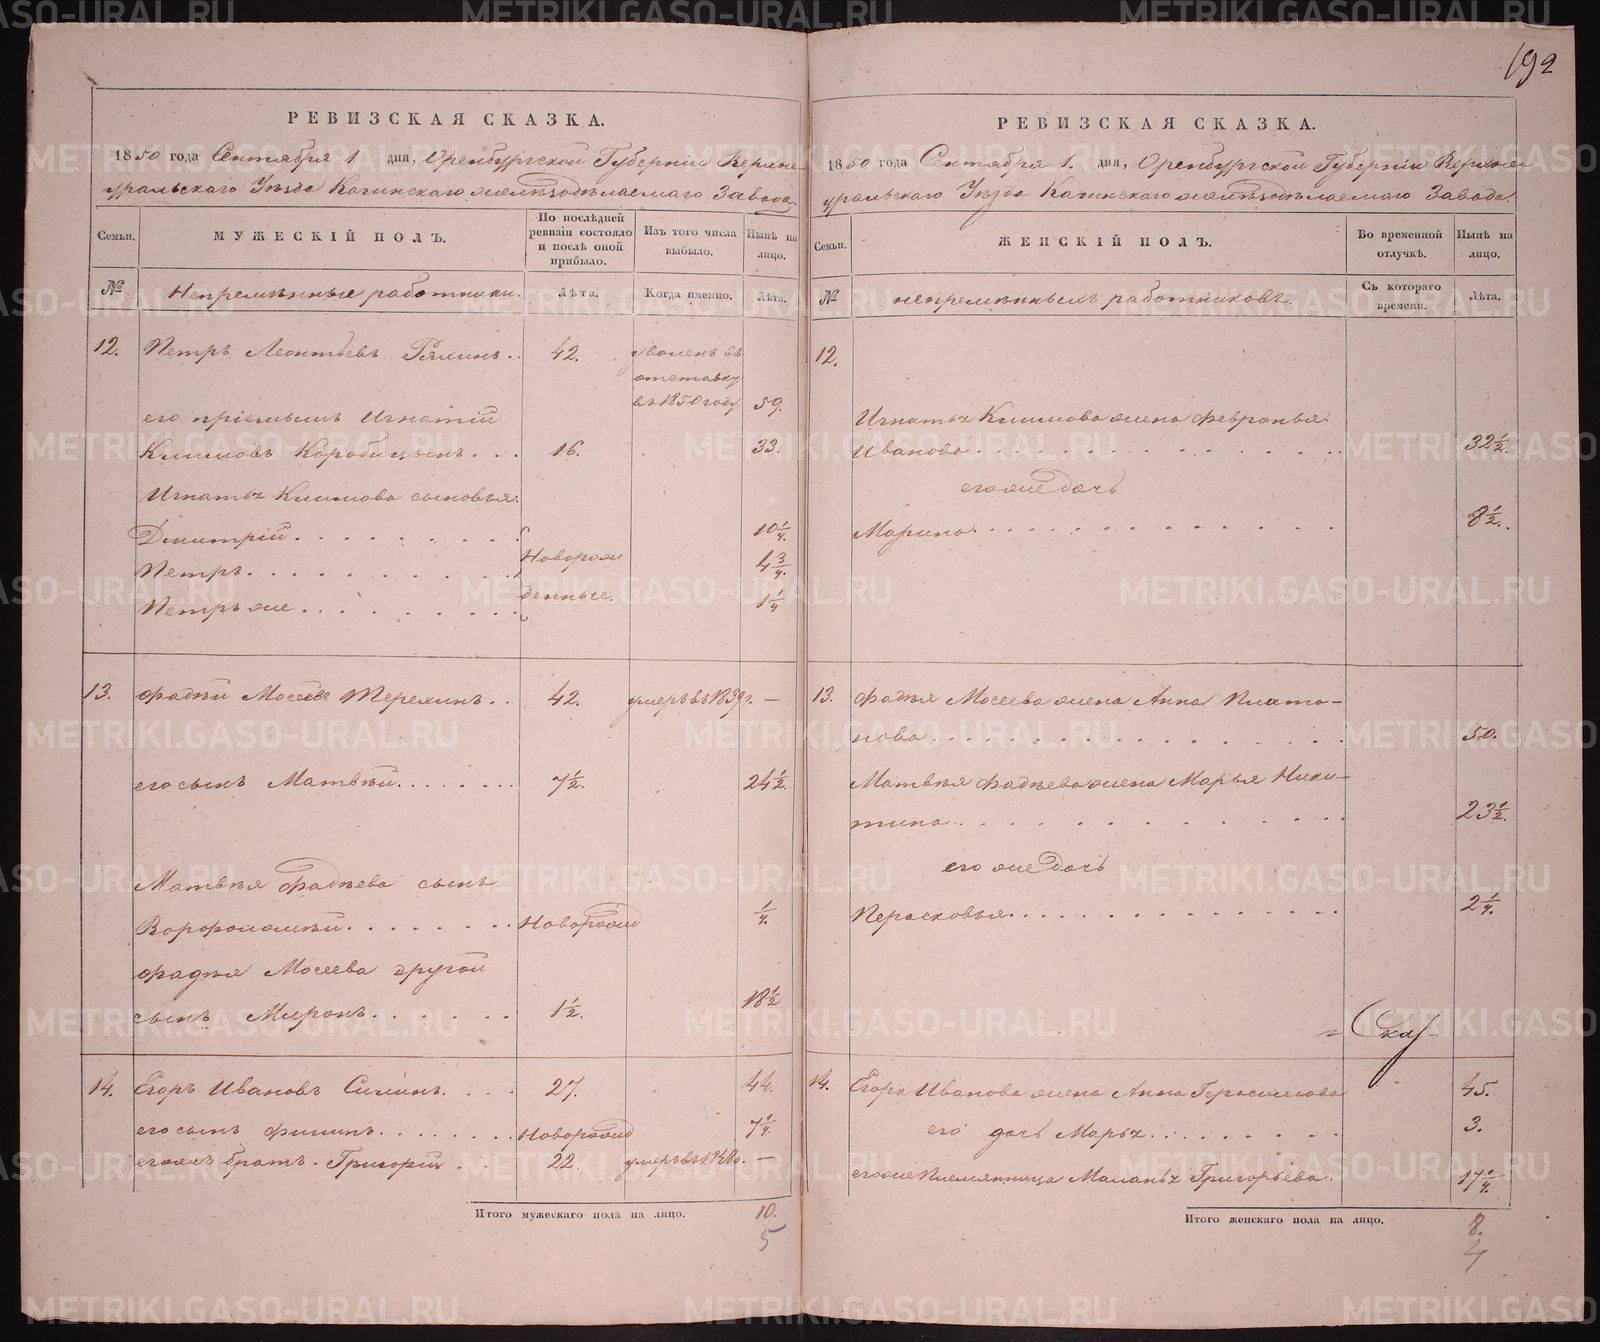 192
РЕВИЗСКАЯ СКАЗКА.
1850 года Сентября 1 дня, Оренбургской Губерніи Верхне
уральскаго Уѣзда Кагинскаго желѣзодѣлаемаго Завода.
Семьи.
МУЖЕСКІЙ ПОЛЪ.
По послѣдней
ревизіи состояло
и послѣ оной
прибыло.
Изъ того числа
выбыло.
Нынѣ на
лицо.
№
Непремѣнные работники.
Лѣта.
Когда именно.
Лѣта.
12. Петръ Леонтьевъ 42. уволенъ въ
отставку
въ 1850 году. 59.
его пріемышъ Игнатій
Климовъ Коробицынъ. 16. 33.
Игнатья Климова сыновья.
Димитрій 10 1/4.
Петръ. Новорож 4 3/4.
Петръ же денные. 1 1/4
13. Фадѣй Мосеевъ Терехинъ. 42. умеръ въ 1839 г. —
его сынъ Матвѣй. 7 1/2. 24 1/2.
Матвѣя Фадѣева сынъ
Варфоломѣй. Новорожд 1/4.
Фадѣя Мосеева другой
сынъ Миронъ. 1 1/2. 18 1/2
14. Егоръ Ивановъ Силинъ. 27. 44.
его сынъ Филипъ. Новорожд 7 1/4.
его же братъ. Григорій 22. умеръ въ 1848 г. —
Итого мужескаго пола на лицо. 10.
5
РЕВИЗСКАЯ СКАЗКА.
1850 года Сентября 1. дня, Оренбургской Губерніи Верхне
уральскаго Уѣзда Кагинскаго желѣзодѣлаемаго Завода.
Семьи.
ЖЕНСКІЙ ПОЛЪ.
Во временной
отлучкѣ.
Нынѣ на
лицо.
№
непремѣнныхъ работниковъ.
Съ котораго
времени.
Лѣта.
12.
Игнатья Климова жена Февронья
Иванова. 32 1/2.
его же дочь
Марина. 8 1/2.
13. Фадѣя Мосеева жена Анна Плато-
нова. 50.
Матвѣя Фадѣева жена Марья Ники-
тина. 23 1/2.
его же дочь
Парасковья. 2 1/4.
= Ска
14. Егора Иванова жена Анна Герасимова 45.
его дочь Марья. 3.
его же племянница Маланья Григорьева. 17 1/4.
Итого женскаго пола на лицо. 8.
4
METRIKI.GASO-URAL.RU